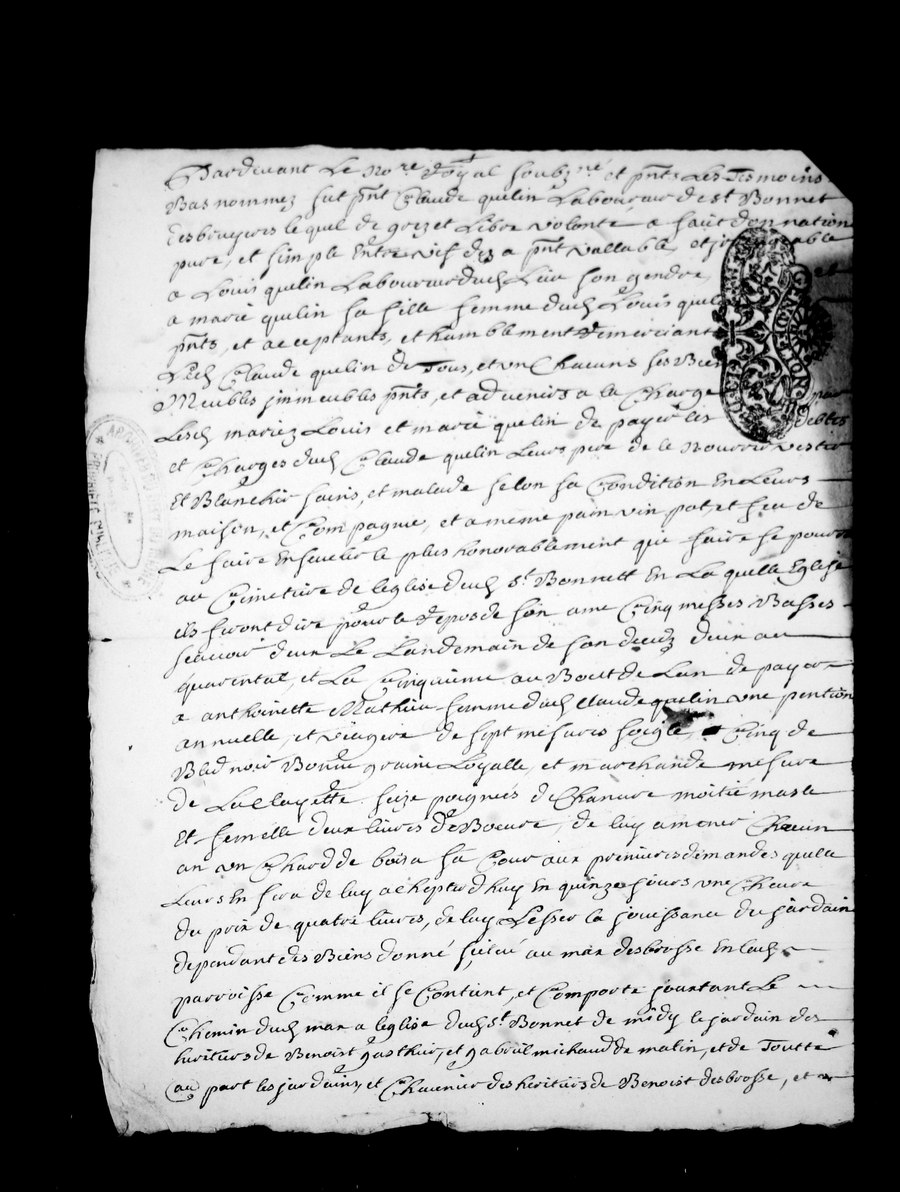 Pardevant Le No.re Royal soubz.né et pnts Les Tesmoins
Bas nommez fut pnt Claude quelin Laboureur de st Bonnet
des bruyers le quel de grez et Libre volonte a fait donnation
pure, et simple Entre vif des a pnt vallable et
a Louis quelin Laboureur dud Lieu son gendre, et
a marie quelin sa fille femme dud Louis quel
pnts, et acceptants, et humblement Remerciant
Led Claude quelin de Tous, et un Chacuns ses Bien
Meubles jmmeubles pnts, et advenirs a la Charge par
Lesd mariez Louis et marie quelin de payer les debtes
et Charges dud Claude quelin Leurs pere de le Nourrir vestir
Et Blanchir sains, et malade selon sa Condition En Leurs
maison, et Compagnie, et a meme pain vin pot, et feu de
Le faire Ensevelir le plus honorablement que faire se pourra
au Cimetiere de leglise dud st. Bonnett En La quelle Eglise
ils feront dire pour le Repos de son ame Cinq messes Basses
scavoir deux Le Landemain de son decez deux au
quarental, et La Cinquieme au Bout de Lan de payer
a anthoinette Mathieu femme dud Claude quelin une pention
annuelle, et viagere de sept mesures soigle, Cinq de
Bled noir Bonne graine Loyalle, et marchande mesure
de La Clayette seize poignees de Chanvre moitié masle
Et femelle deux livres de Boeure, de luy amener Chacun
an un Chard de bois a sa Cour aux premieres demandes quelle
Leurs En fera de luy achepter d huy En quinze jours une Chevre
du prix de quatre livres, de luy Lesser la jouissance du jardain
dependant des Biens donné scitué au mas desbrosse En lad
parroisse Comme il se Contient, et Comporte joustant Le
Chemin dud mas a leglise dud st. Bonnet de midy le jardain des
heritiers de Benoist gasthier, et gabriel michaud de matin, et de Toutte
au part les jardains, et Chenevier des heritiers de Benoist desbrosse, et